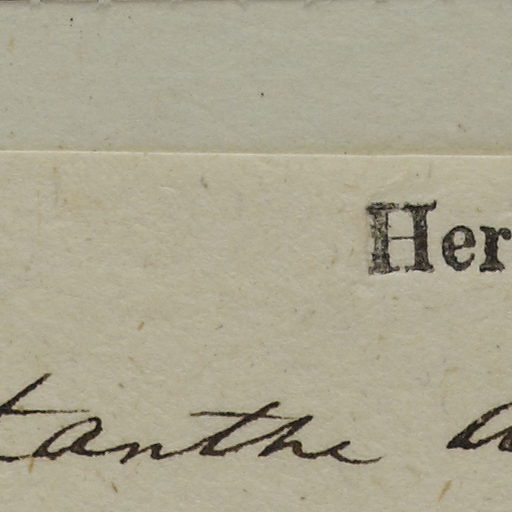 Her
tanthe a